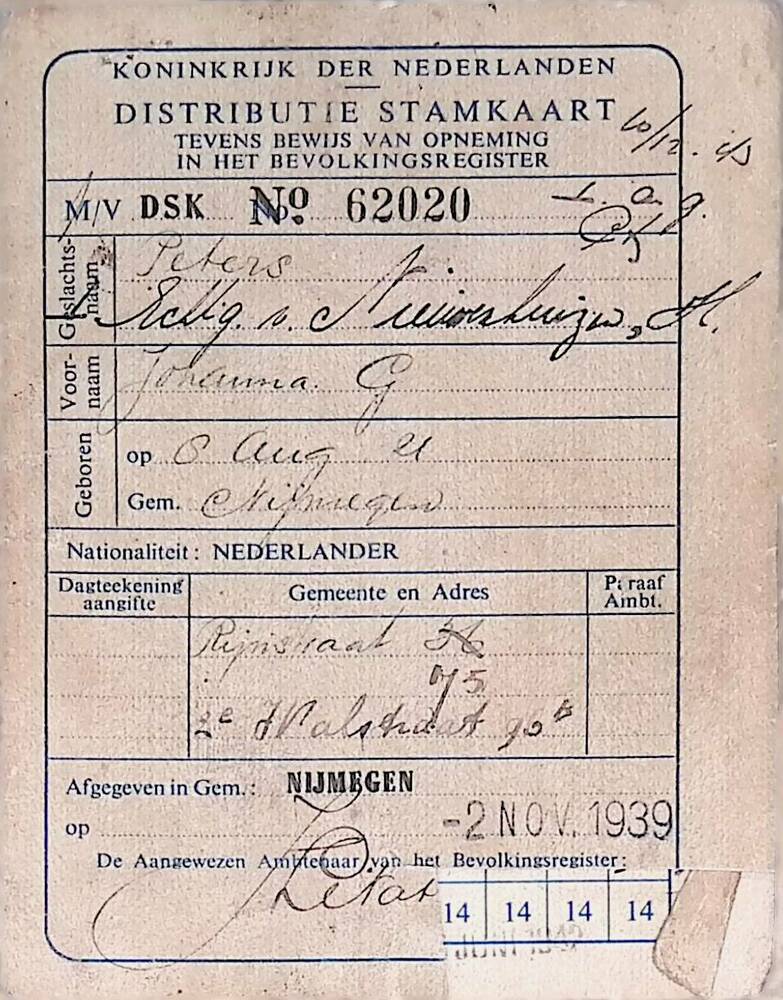 KONINKRIJK DER NEDERLANDEN
DISTRIBUTIE STAMKAART
TEVENS BEWIJS VAN OPNEMING
IN HET BEVOLKINGSREGISTER
M/V DSK No. 62020
Geslachts-naam
Peters
v. Nieuwenhuizen, H.
Voor-naam
Johanna G
Geboren
op 6 Aug 21
Gem. Nijmegen
Nationaliteit: NEDERLANDER
Dagteekening aangifte
Gemeente en Adres
Paraaf Ambt.
Rijnstraat
75
2e Walstraat 96
Afgegeven in Gem.: NIJMEGEN
op -2 NOV. 1939
De Aangewezen Ambtenaar van het Bevolkingsregister:
14 14 14 14